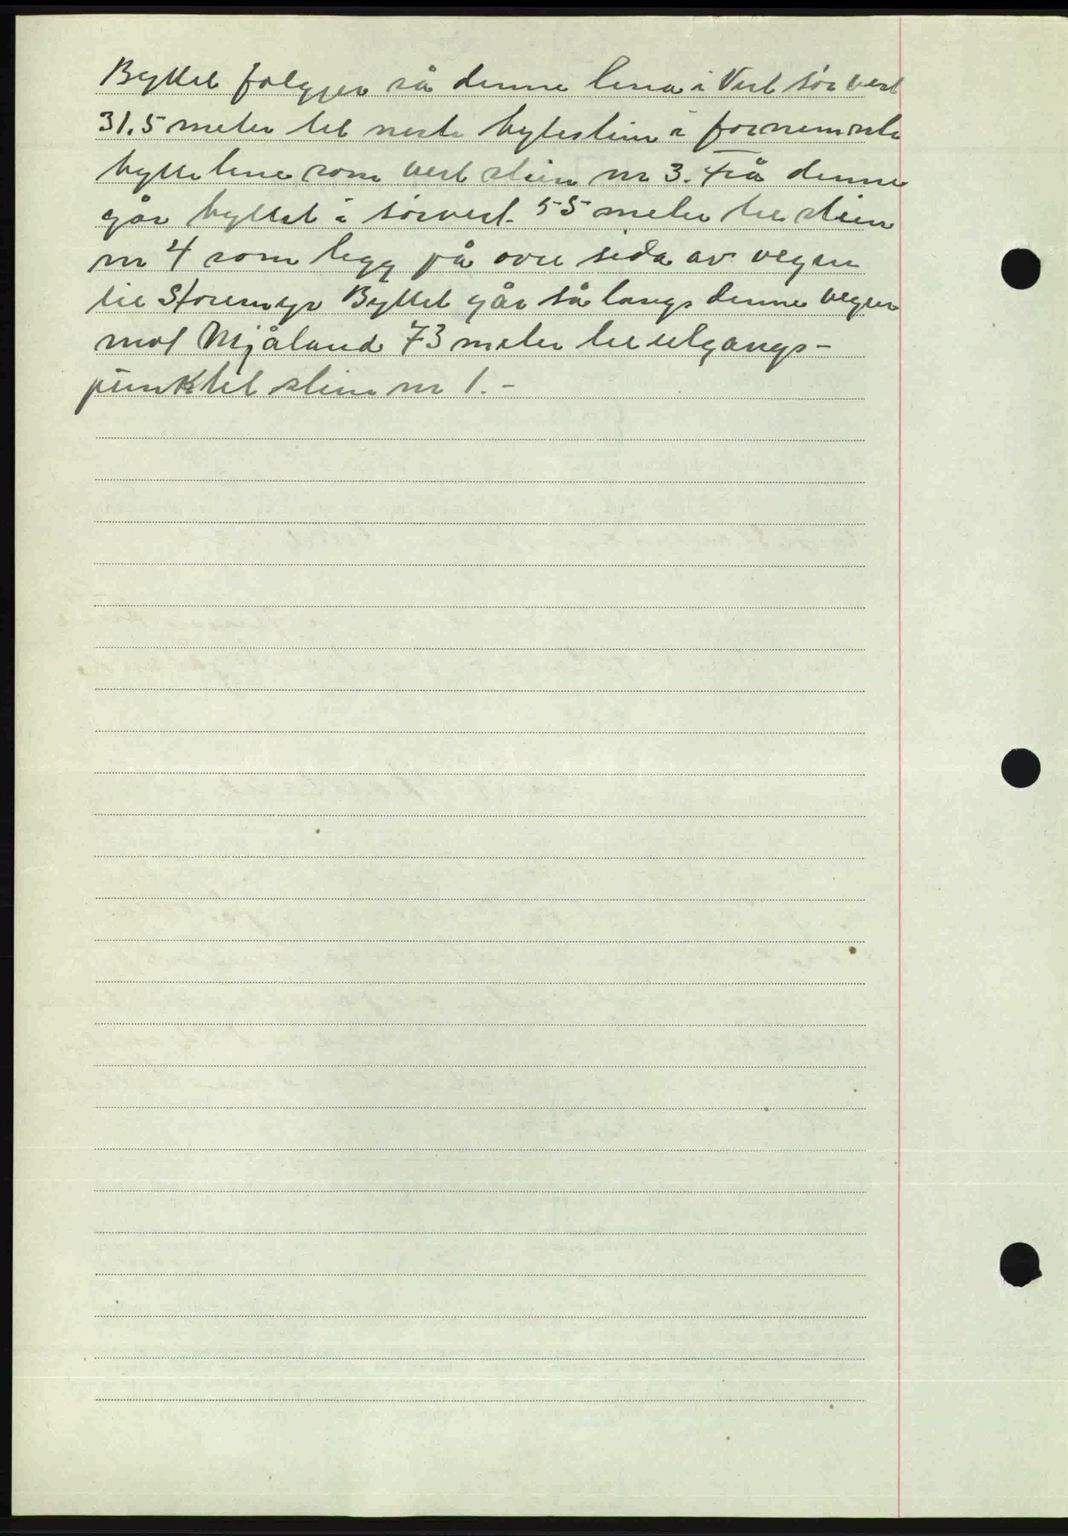 Byttet følgjer så denne lina i Vest sør vest
31.5 meter til neste bytestein i fornemnde
bytte line som vert stein nr 3. Frå denne
går byttet i sørvest 55 meter til stein
nr 4 som ligg på øvre sida av vegen
til Storemyr Byttet går så langs denne vegen
mot Mjåland 73 meter til utgangs-
punktet stein nr 1.-